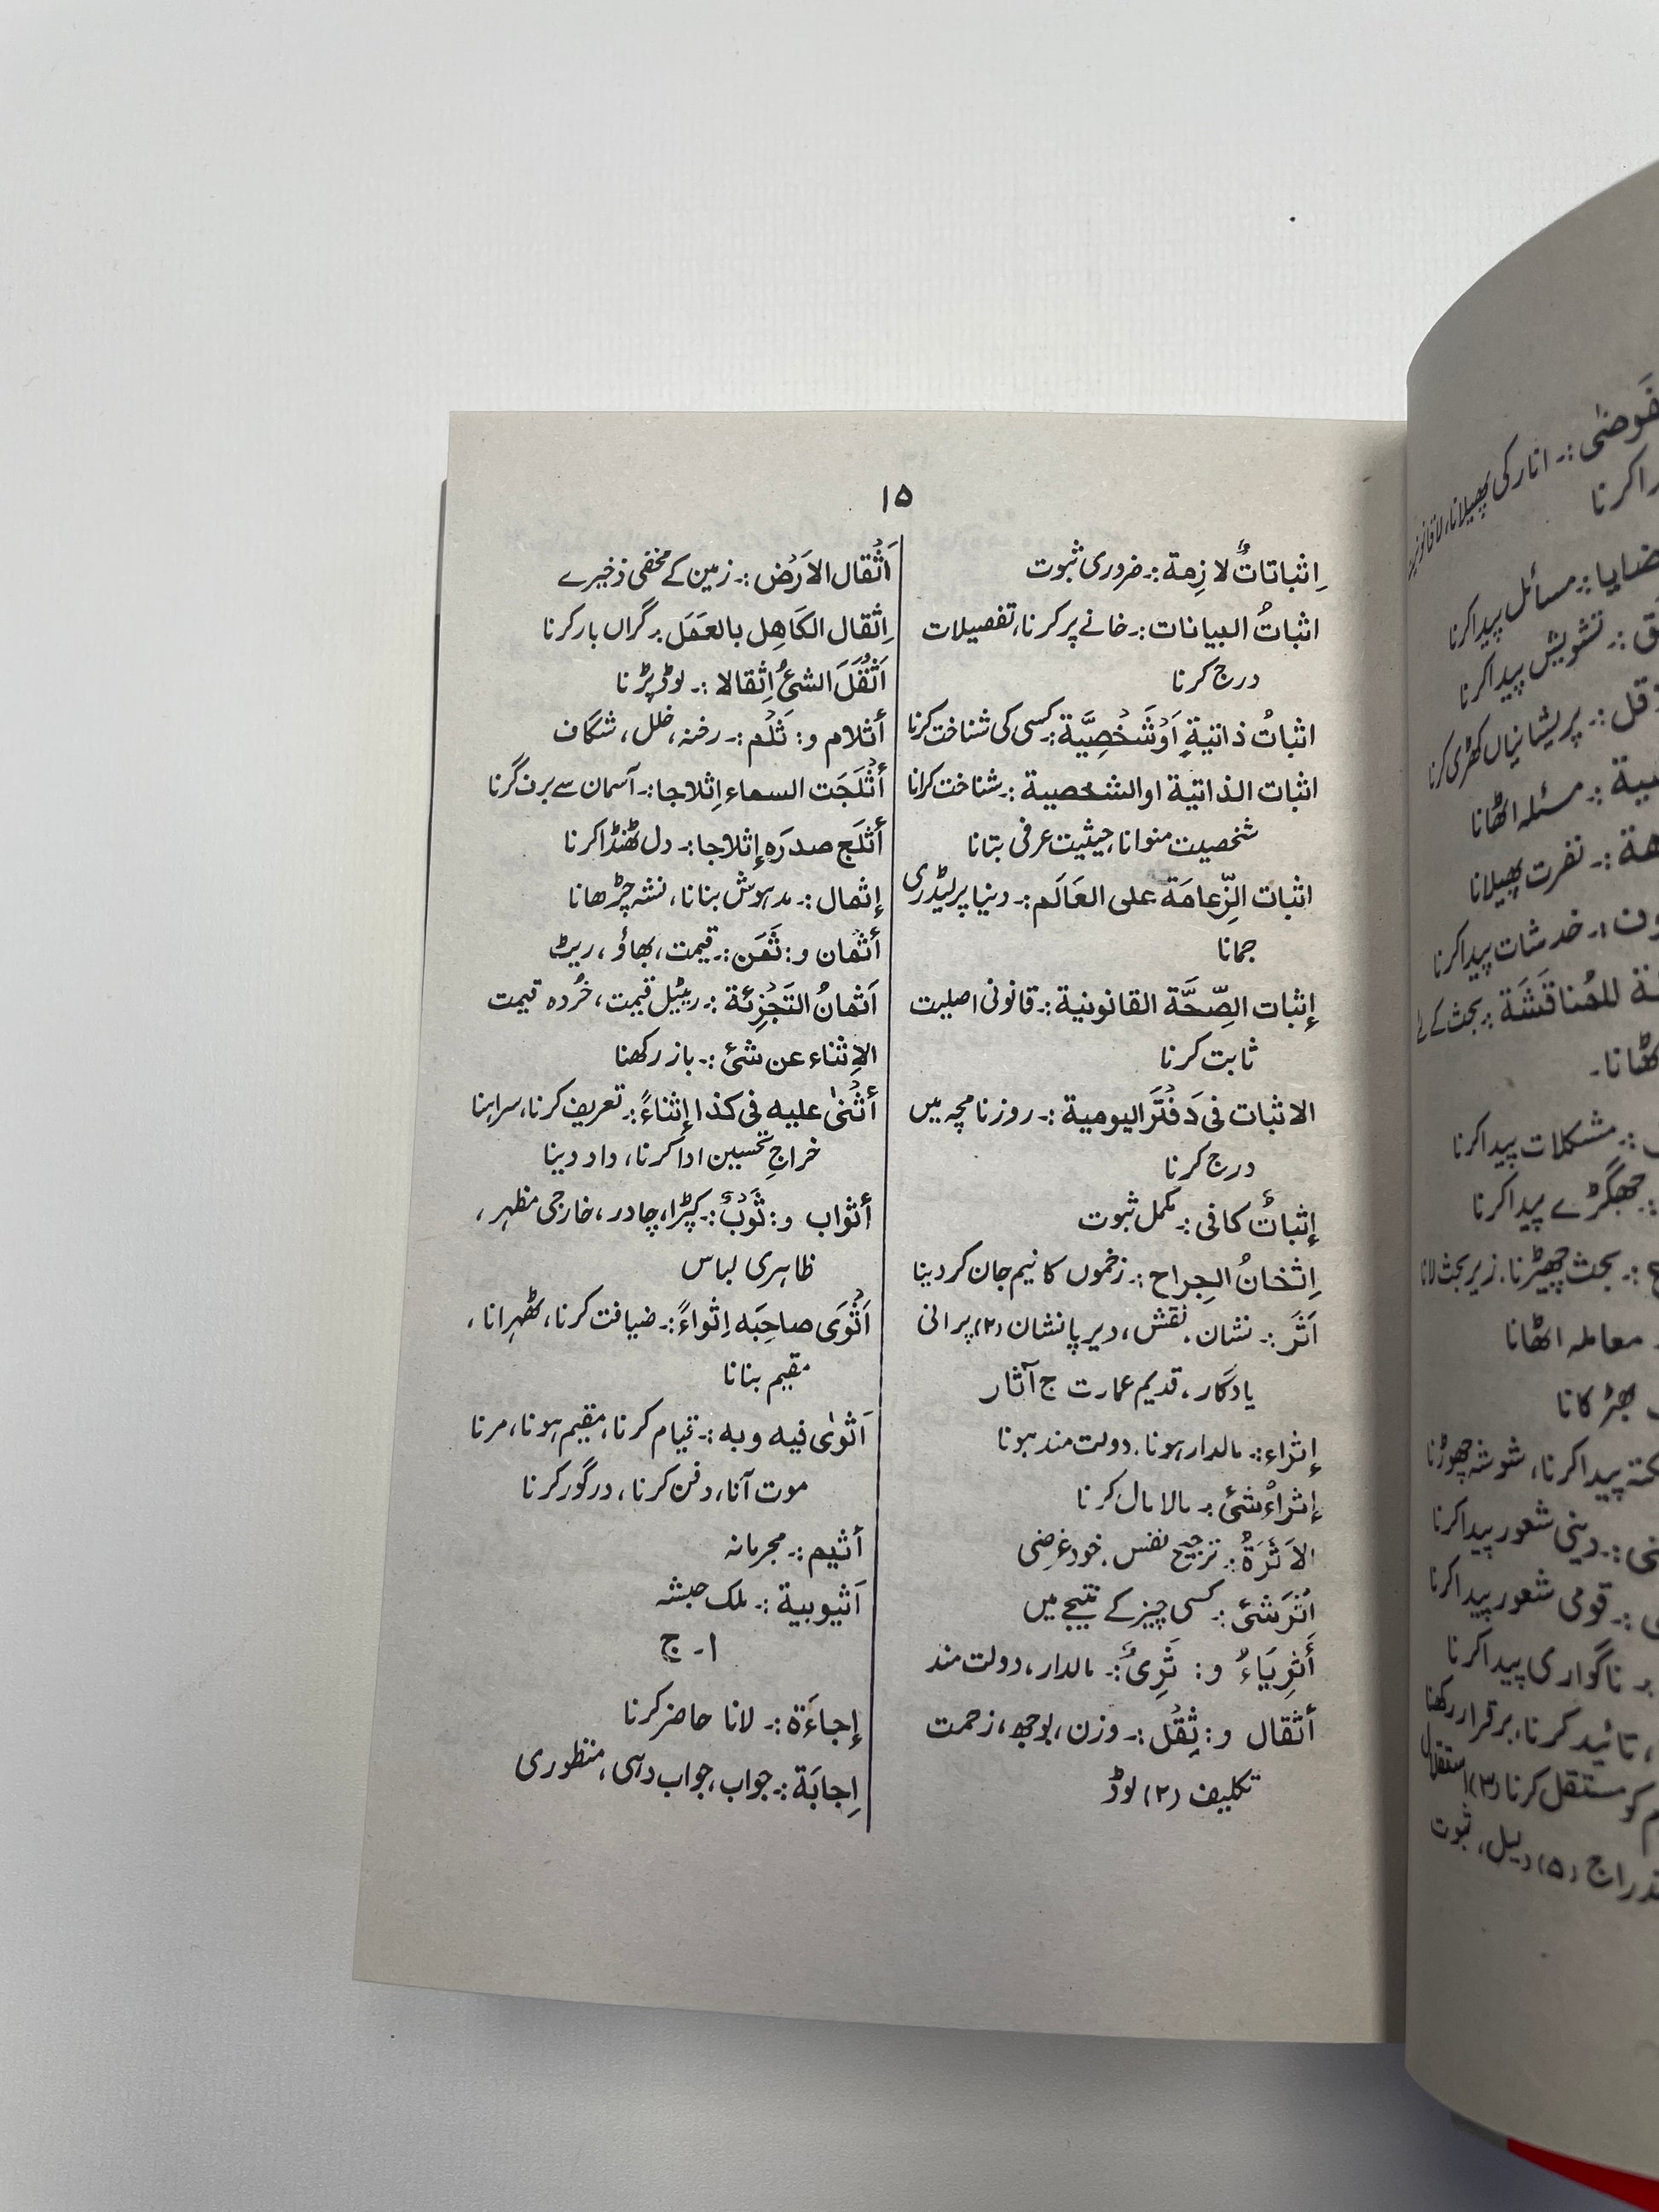 ۱۵
اِثباتاتٌ لازِمة:۔ ضروری ثبوت
اثباتُ البیانات:۔ خانے پر کرنا، تفصیلات
درج کرنا
اثباتُ ذاتیةٍ اَوْشَخْصِیَّة:۔ کسی کی شناخت کرنا
اثبات الذاتیة او الشخصیة:۔ شناخت کرانا
شخصیت منوانا، حیثیت عرفی بتانا
اثبات الزِّعامَة علی العَالَم:۔ دنیا پر لیڈری
جمانا
إثبات الصِّحَّة القانونیة:۔ قانونی اصلیت
ثابت کرنا
الاثبات فی دَفْتَر الیومیة:۔ روزنامچہ میں
درج کرنا
إثباتٌ کافی:۔ مکمل ثبوت
اِثخانُ الجِراح:۔ زخموں کا نیم جان کر دینا
اَثَر:۔ نشان، نقش، دیرپا نشان (۲) پرانی
یادگار، قدیم عمارت ج آثار
إثراء:۔ مالدار ہونا، دولت مند ہونا
إثراءُ شئ:۔ مالا مال کرنا
الاَثَرَةُ:۔ ترجیح نفس، خود غرضی
اَثَرَ شئ:۔ کسی چیز کے نتیجے میں
أَثرِیَاءُ و: ثَرِیٌ:۔ مالدار، دولت مند
أثقال و: ثِقْل:۔ وزن، بوجھ، زحمت
تکلیف (۲) لوڈ
اَثْقال الاَرْض:۔ زمین کے مخفی ذخیرے
اِثقال الکَاهِل بالعَمَل:۔ گراں بار کرنا
اَثْقَلَ الشئُ اِثقالا:۔ لوڈ پڑنا
أثلام و: ثَلْم:۔ رخنہ، خلل، شگاف
أَثْلَجَت السماء اِثلاجا:۔ آسمان سے برف گرنا
أثلَج صدرَه إثلاجا:۔ دل ٹھنڈا کرنا
إثمال:۔ مدہوش بنانا، نشہ چڑھانا
أثمان و: ثَمَن:۔ قیمت، بھاؤ، ریٹ
اَثمانُ التَجْزِئة:۔ ریٹیل قیمت، خُردہ قیمت
الاِثناء عن شئ:۔ باز رکھنا
أثْنیٰ علیه فی کذا إثناءً:۔ تعریف کرنا، سراہنا
خراجِ تحسین ادا کرنا، داد دینا
أثواب و: ثَوْبٌ:۔ کپڑا، چادر، خارجی مظہر،
ظاہری لباس
اَثْوَی صاحِبَه اِثواءً:۔ ضیافت کرنا، ٹھہرانا،
مقیم بنانا
اَثویٰ فیه وبه:۔ قیام کرنا، مقیم ہونا، مرنا
موت آنا، دفن کرنا، درگور کرنا
أثیم:۔ مجرمانہ
اَثیوبیة:۔ ملک حبشہ
ا۔ ج
إجاءَة:۔ لانا حاضر کرنا
اِجابَة:۔ جواب، جواب دہی، منظوری
اکرنا
مسائل پیدا کرنا
تشویش پیدا کرنا
پریشانیاں کھڑی کرنا
مسئلہ اٹھانا
نفرت پھیلانا
خدشات پیدا کرنا
للمُناقَشَة:۔ بحث کے لئے
مشکلات پیدا کرنا
جھگڑے پیدا کرنا
بحث چھیڑنا، زیر بحث لانا
معاملہ اٹھانا
پیدا کرنا، شوشہ چھوڑنا
دینی شعور پیدا کرنا
قومی شعور پیدا کرنا
ناگواری پیدا کرنا
تائید کرنا، برقرار رکھنا
کو مستقل کرنا (۳)
(۵) دلیل، ثبوت